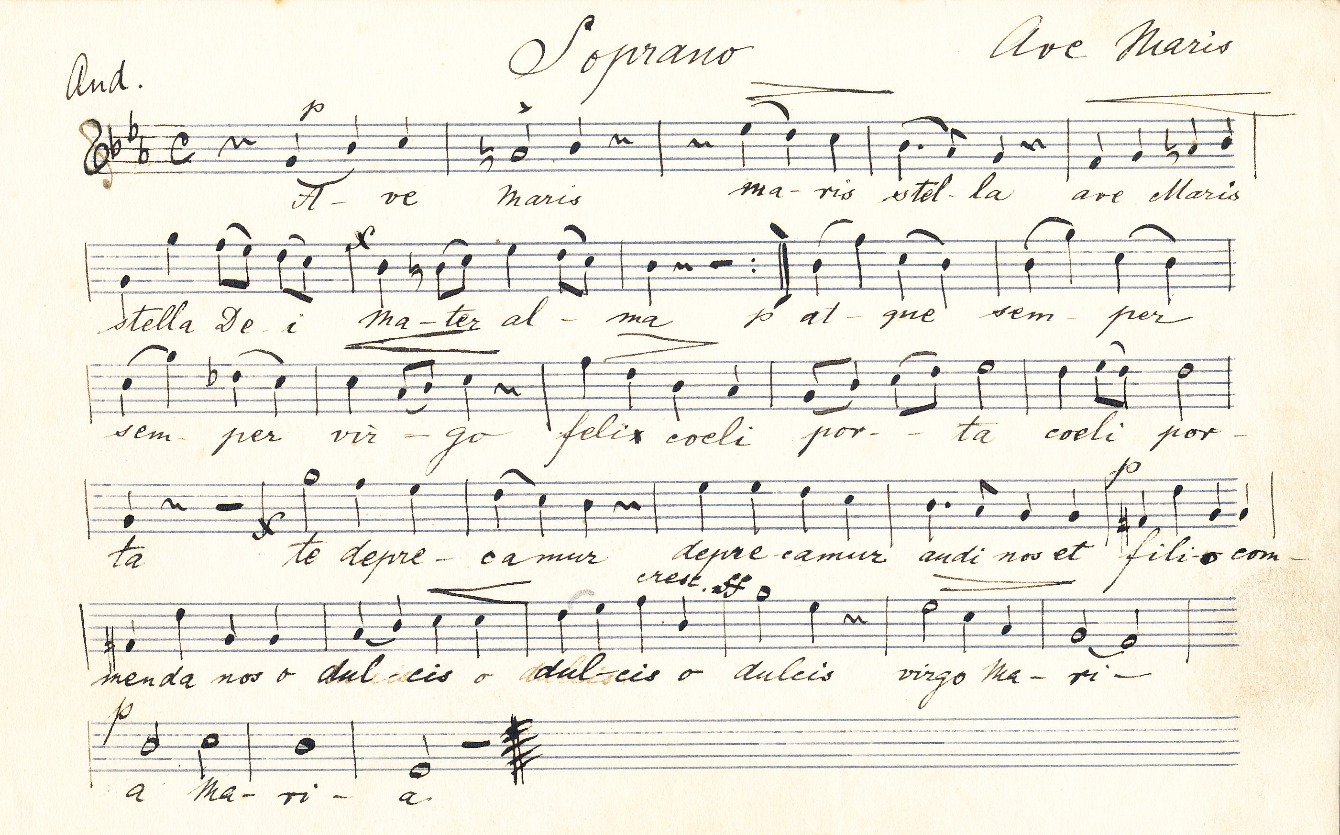 Soprano
Ave Maris
And.
p
A- ve maris ma- ris stel- la ave Maris
stella De- i ma-ter al- ma p at- que sem- per
sem- per vir- go felix coeli por- - ta coeli por-
p
ta te depre- camur depre camur audi nos et fili-o com-
cresc. ff
menda nos o dul cis o dul-cis o dulcis virgo Ma- ri-
p
a Ma- ri- a